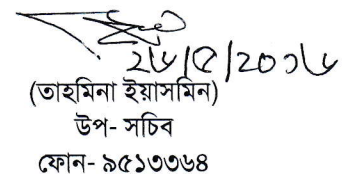 ২৬/৫/২০১৬
(তাহমিনা ইয়াসমিন)
উপ- সচিব
ফোন- ৯৫১৩৩৬৪